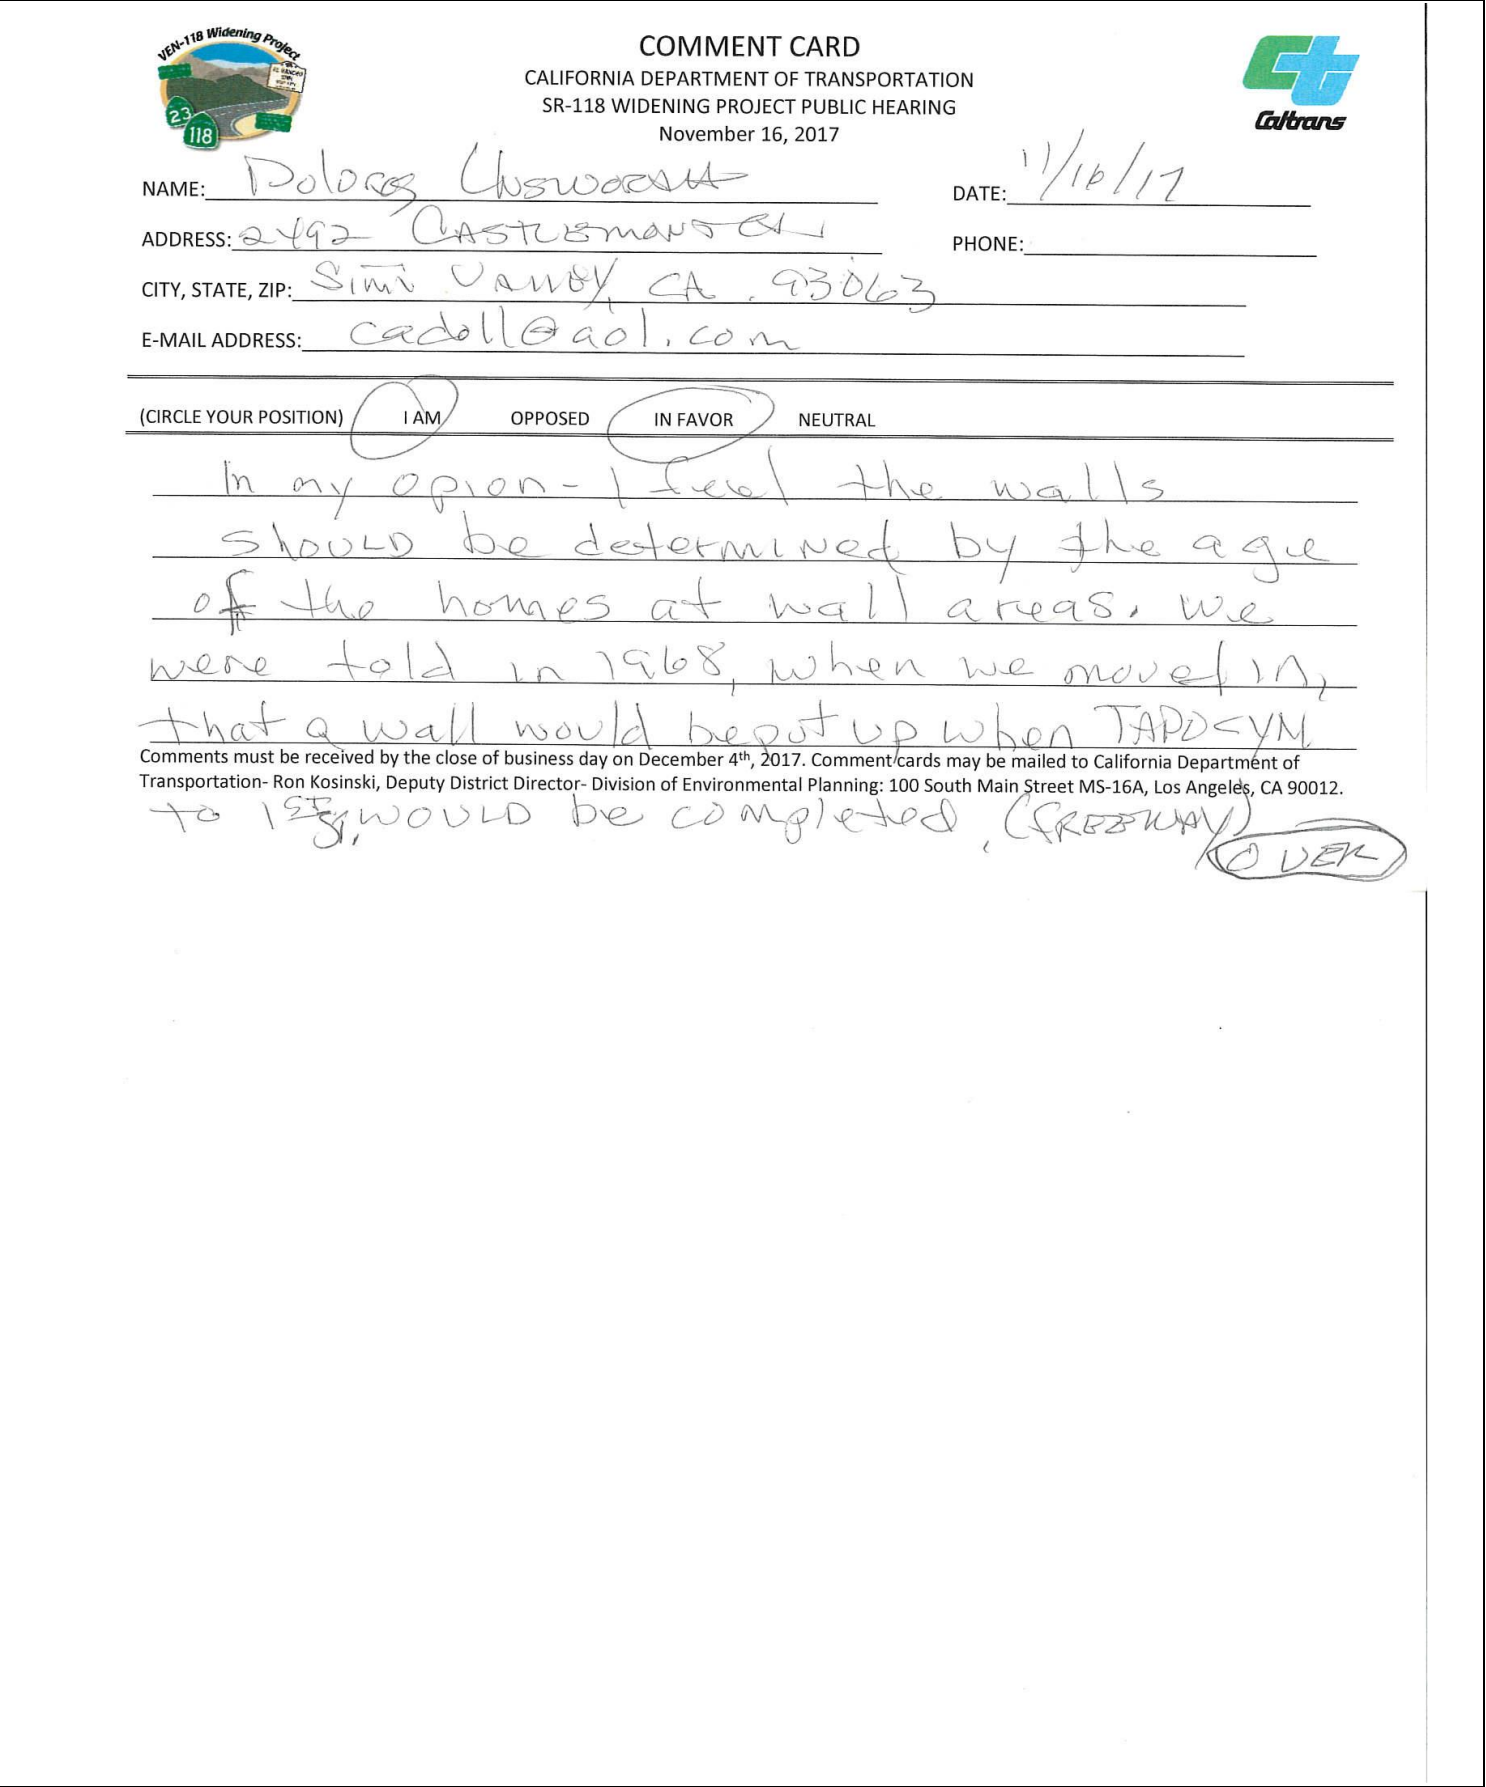 VEN-118 Widening Project
23
118
COMMENT CARD
CALIFORNIA DEPARTMENT OF TRANSPORTATION
SR-118 WIDENING PROJECT PUBLIC HEARING
November 16, 2017
Caltrans
NAME: Dolores
DATE: 11/16/17
ADDRESS: 2492
PHONE:
CITY, STATE, ZIP: Simi Valley, CA. 93063
E-MAIL ADDRESS: cadoll@aol.com
(CIRCLE YOUR POSITION) I AM OPPOSED IN FAVOR NEUTRAL
In my opion - I feel the walls
should be determined by the age
of the homes at wall areas. We
were told in 1968, when we moved in,
that a wall would be put up when TAPO CYN
Comments must be received by the close of business day on December 4th, 2017. Comment cards may be mailed to California Department of
Transportation- Ron Kosinski, Deputy District Director- Division of Environmental Planning: 100 South Main Street MS-16A, Los Angeles, CA 90012.
to 1ST St. WOULD be completed, (FREEWAY)
OVER